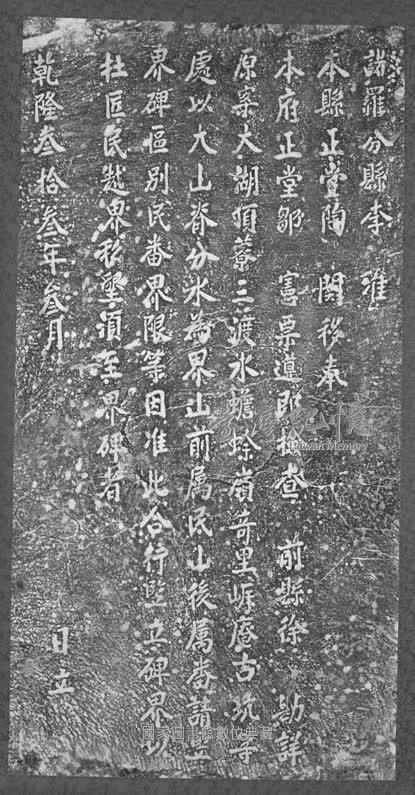 諸羅分縣李 准
本縣正堂陶 關移奉
本府正堂鄒 憲票遵即檢查 前縣徐 勘詳
原案大湖頂藔三渡水蟾蜍嶺竒里岸廢古坑等
處以大山脊分水為界山前属民山後属番請竪
界碑區別民番界限等因准此合行竪立碑界以
杜匠民越界移墾須至界碑者
乾隆叁拾叁年叁月 日立
Taiwan Memory
國家圖書館數位典藏